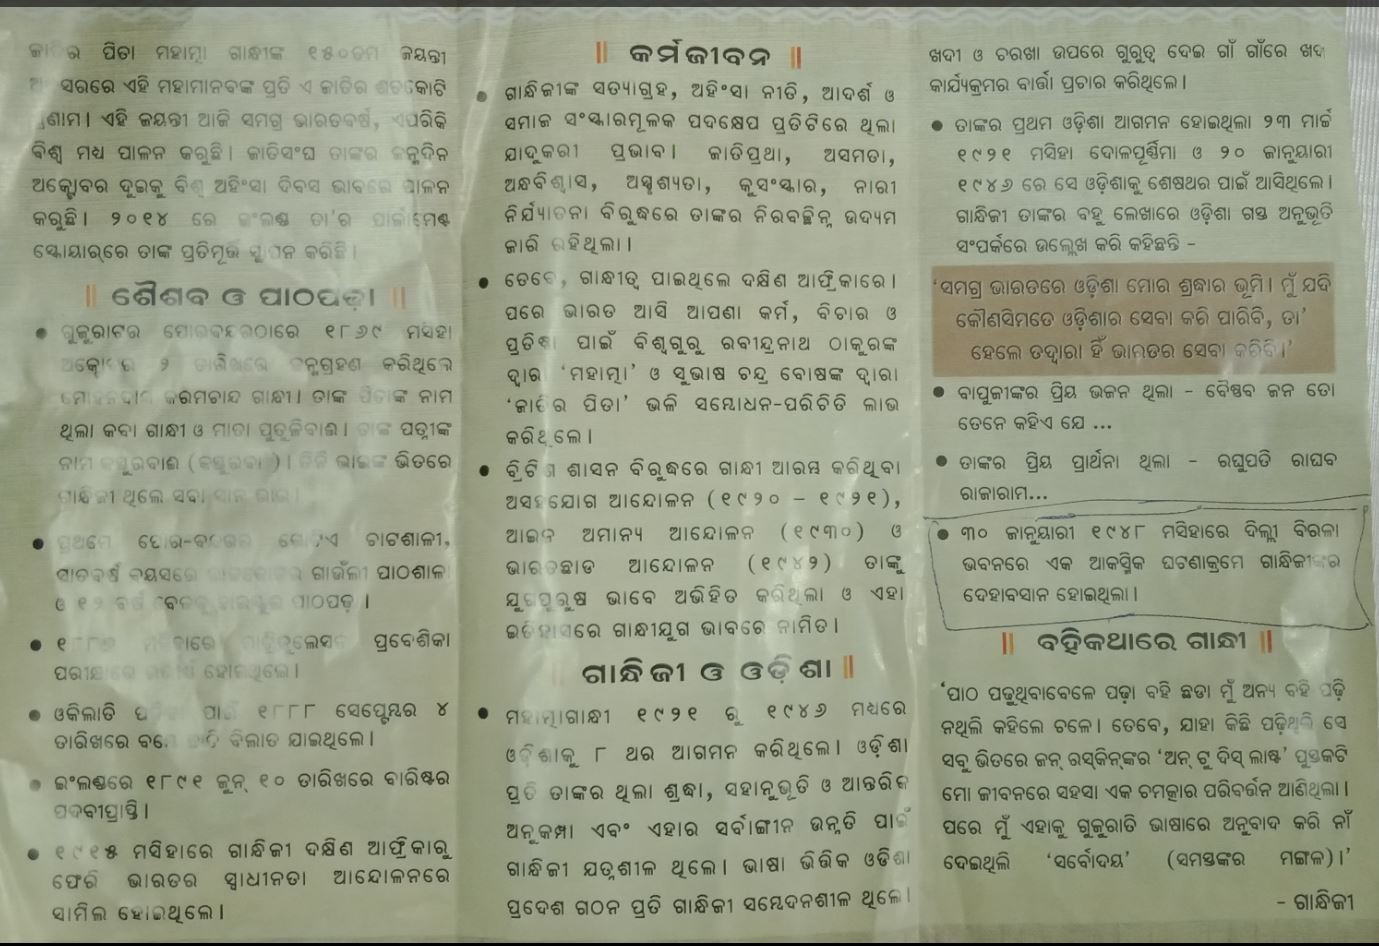 ପିତା ମହାତ୍ମା ଗାନ୍ଧୀଙ୍କ ୧୫୦ତମ ଜୟନ୍ତୀ
ସରରେ ଏହି ମହାମାନବଙ୍କ ପ୍ରତି ଏ ଜାତିର ଶତକୋଟି
ଏହି ଜୟନ୍ତୀ ଆଜି ସମଗ୍ର ଭାରତବର୍ଷ, ଏପରିକି
ବିଶ୍ୱ ମଧ୍ୟ ପାଳନ କରୁଛି। ଜାତିସଂଘ ତାଙ୍କର ଜନ୍ମଦିନ
ଅକ୍ଟୋବର ଦୁଇକୁ ବିଶ୍ୱ ଅହିଂସା ଦିବସ ଭାବରେ ପାଳନ
କରୁଛି। ୨୦୧୪ ରେ ଇଂଲଣ୍ଡ ତା'ର ପାର୍ଲାମେଣ୍ଟ
ସ୍କୋୟାର୍‌ରେ ତାଙ୍କ ପ୍ରତିମୂର୍ତ୍ତି ସ୍ଥାପନ କରିଛି।
॥ ଶୈଶବ ଓ ପାଠପଢ଼ା ॥
• ଗୁଜୁରାଟର ପୋରବନ୍ଦରଠାରେ ୧୮୬୯ ମସିହା
ଅକ୍ଟୋବର ୨ ତାରିଖରେ ଜନ୍ମଗ୍ରହଣ କରିଥିଲେ
ମୋହନଦାସ କରମଚାନ୍ଦ ଗାନ୍ଧୀ। ତାଙ୍କ ପିତାଙ୍କ ନାମ
ଥିଲା କବା ଗାନ୍ଧୀ ଓ ମାତା ପୁତୁଳିବାଈ। ତାଙ୍କ ପତ୍ନୀଙ୍କ
ନାମ କସ୍ତୁରବାଈ ଭାଇଙ୍କ ଭିତରେ
ଗାନ୍ଧିଜୀ ଥିଲେ ସବା ସାନ ଭାଇ।
• ପ୍ରଥମେ ଚାଟଶାଳୀ,
ସାତବର୍ଷ ବୟସରେ ଗାଉଁଲୀ ପାଠଶାଳା
ଓ ୧୨ ବର୍ଷ ପାଠପଢ଼।
• ପ୍ରବେଶିକା
ପରୀକ୍ଷାରେ ହୋଇଥିଲେ।
• ଓକିଲାତି ପାଇଁ ୧୮୮୮ ସେପ୍ଟେମ୍ବର ୪
ତାରିଖରେ ବିଲାତ ଯାଇଥିଲେ।
• ଇଂଲଣ୍ଡରେ ୧୮୯୧ ଜୁନ୍ ୧୦ ତାରିଖରେ ବାରିଷ୍ଟର
ପଦବୀପ୍ରାପ୍ତି।
• ୧୯୧୫ ମସିହାରେ ଗାନ୍ଧିଜୀ ଦକ୍ଷିଣ ଆଫ୍ରିକାରୁ
ଫେରି ଭାରତର ସ୍ୱାଧୀନତା ଆନ୍ଦୋଳନରେ
ସାମିଲ ହୋଇଥିଲେ।
॥ କର୍ମଜୀବନ ॥
• ଗାନ୍ଧିଜୀଙ୍କ ସତ୍ୟାଗ୍ରହ, ଅହିଂସା ନୀତି, ଆଦର୍ଶ ଓ
ସମାଜ ସଂସ୍କାରମୂଳକ ପଦକ୍ଷେପ ପ୍ରତିଟିରେ ଥିଲା
ଯାଦୁକରୀ ପ୍ରଭାବ। ଜାତିପ୍ରଥା, ଅସମତା,
ଅନ୍ଧବିଶ୍ୱାସ, ଅସ୍ପୃଶ୍ୟତା, କୁସଂସ୍କାର, ନାରୀ
ନିର୍ଯ୍ୟାତନା ବିରୁଦ୍ଧରେ ତାଙ୍କର ନିରବଚ୍ଛିନ୍ନ ଉଦ୍ୟମ
ଜାରି ରହିଥିଲା।
• ତେବେ, ଗାନ୍ଧୀତ୍ୱ ପାଇଥିଲେ ଦକ୍ଷିଣ ଆଫ୍ରିକାରେ।
ପରେ ଭାରତ ଆସି ଆପଣା କର୍ମ, ବିଚାର ଓ
ପ୍ରତିଷ୍ଠା ପାଇଁ ବିଶ୍ୱଗୁରୁ ରବୀନ୍ଦ୍ରନାଥ ଠାକୁରଙ୍କ
ଦ୍ୱାରା 'ମହାତ୍ମା' ଓ ସୁଭାଷ ଚନ୍ଦ୍ର ବୋଷଙ୍କ ଦ୍ୱାରା
'ଜାତିର ପିତା' ଭଳି ସମ୍ବୋଧନ-ପରିଚିତି ଲାଭ
କରିଥିଲେ।
• ବ୍ରିଟିଶ ଶାସନ ବିରୁଦ୍ଧରେ ଗାନ୍ଧୀ ଆରମ୍ଭ କରିଥିବା
ଅସହଯୋଗ ଆନ୍ଦୋଳନ (୧୯୨୦ – ୧୯୨୧),
ଆଇନ ଅମାନ୍ୟ ଆନ୍ଦୋଳନ (୧୯୩୦) ଓ
ଭାରତଛାଡ ଆନ୍ଦୋଳନ (୧୯୪୨) ତାଙ୍କୁ
ଯୁଗପୁରୁଷ ଭାବେ ଅଭିହିତ କରିଥିଲା ଓ ଏହା
ଇତିହାସରେ ଗାନ୍ଧୀଯୁଗ ଭାବରେ ନାମିତ।
॥ ଗାନ୍ଧିଜୀ ଓ ଓଡ଼ିଶା ॥
• ମହାତ୍ମାଗାନ୍ଧୀ ୧୯୨୧ ରୁ ୧୯୪୬ ମଧ୍ୟରେ
ଓଡ଼ିଶାକୁ ୮ ଥର ଆଗମନ କରିଥିଲେ। ଓଡ଼ିଶା
ପ୍ରତି ତାଙ୍କର ଥିଲା ଶ୍ରଦ୍ଧା, ସହାନୁଭୂତି ଓ ଆନ୍ତରିକ
ଅନୁକମ୍ପା ଏବଂ ଏହାର ସର୍ବାଙ୍ଗୀନ ଉନ୍ନତି ପାଇଁ
ଗାନ୍ଧିଜୀ ଯତ୍ନଶୀଳ ଥିଲେ। ଭାଷା ଭିତ୍ତିକ ଓଡିଶା
ପ୍ରଦେଶ ଗଠନ ପ୍ରତି ଗାନ୍ଧିଜୀ ସମ୍ବେଦନଶୀଳ ଥିଲେ।
ଖଦୀ ଓ ଚରଖା ଉପରେ ଗୁରୁତ୍ୱ ଦେଇ ଗାଁ ଗାଁରେ ଖଦୀ
କାର୍ଯ୍ୟକ୍ରମର ବାର୍ତ୍ତା ପ୍ରଚାର କରିଥିଲେ।
• ତାଙ୍କର ପ୍ରଥମ ଓଡ଼ିଶା ଆଗମନ ହୋଇଥିଲା ୨୩ ମାର୍ଚ୍ଚ
୧୯୨୧ ମସିହା ଦୋଳପୂର୍ଣ୍ଣିମା ଓ ୨୦ ଜାନୁୟାରୀ
୧୯୪୬ ରେ ସେ ଓଡ଼ିଶାକୁ ଶେଷଥର ପାଇଁ ଆସିଥିଲେ।
ଗାନ୍ଧିଜୀ ତାଙ୍କର ବହୁ ଲେଖାରେ ଓଡ଼ିଶା ଗସ୍ତ ଅନୁଭୂତି
ସଂପର୍କରେ ଉଲ୍ଲେଖ କରି କହିଛନ୍ତି –
'ସମଗ୍ର ଭାରତରେ ଓଡ଼ିଶା ମୋର ଶ୍ରଦ୍ଧାର ଭୂମି। ମୁଁ ଯଦି
କୌଣସିମତେ ଓଡ଼ିଶାର ସେବା କରି ପାରିବି, ତା'
ହେଲେ ତଦ୍ୱାରା ହିଁ ଭାରତର ସେବା କରିବି।'
• ବାପୁଜୀଙ୍କର ପ୍ରିୟ ଭଜନ ଥିଲା – ବୈଷ୍ଣବ ଜନ ତୋ
ତେନେ କହିଏ ଯେ ...
• ତାଙ୍କର ପ୍ରିୟ ପ୍ରାର୍ଥନା ଥିଲା – ରଘୁପତି ରାଘବ
ରାଜାରାମ...
• ୩୦ ଜାନୁୟାରୀ ୧୯୪୮ ମସିହାରେ ଦିଲ୍ଲୀ ବିରଳା
ଭବନରେ ଏକ ଆକସ୍ମିକ ଘଟଣାକ୍ରମେ ଗାନ୍ଧିଜୀଙ୍କର
ଦେହାବସାନ ହୋଇଥିଲା।
॥ ବହିକଥାରେ ଗାନ୍ଧୀ ॥
'ପାଠ ପଢୁଥିବାବେଳେ ପଢ଼ା ବହି ଛଡା ମୁଁ ଅନ୍ୟ ବହି ପଢ଼ି
ନଥିଲି କହିଲେ ଚଳେ। ତେବେ, ଯାହା କିଛି ପଢ଼ିଥିଲି ସେ
ସବୁ ଭିତରେ ଜନ୍ ରସ୍‌କିନ୍‌ଙ୍କର 'ଅନ୍ ଟୁ ଦିସ୍ ଲାଷ୍ଟ' ପୁସ୍ତକଟି
ମୋ ଜୀବନରେ ସହସା ଏକ ଚମତ୍କାର ପରିବର୍ତ୍ତନ ଆଣିଥିଲା।
ପରେ ମୁଁ ଏହାକୁ ଗୁଜୁରାତି ଭାଷାରେ ଅନୁବାଦ କରି ନାଁ
ଦେଇଥିଲି 'ସର୍ବୋଦୟ' (ସମସ୍ତଙ୍କର ମଙ୍ଗଳ)।'
– ଗାନ୍ଧିଜୀ